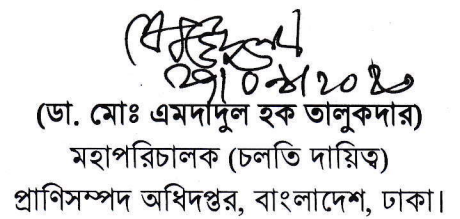 (ডা. মোঃ এমদাদুল হক তালুকদার)
মহাপরিচালক (চলতি দায়িত্ব)
প্রাণিসম্পদ অধিদপ্তর, বাংলাদেশ, ঢাকা।